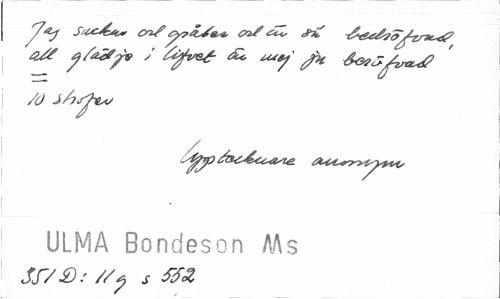 Jag suckar och gråter och är så bedröfvad,
all glädje i lifvet är mej ju beröfvad
=
10 strofer
Upptecknare anonym
ULMA Bondeson Ms
351 D: 11 g s 552